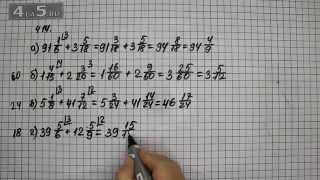 4LS.RU
414.
а) 91 1/6 + 3 5/18 = 91 3/18 + 3 5/18 = 94 8/18 = 94 4/9
60 б) 1 4/15 + 2 3/20 = 1 16/60 + 2 9/60 = 3 25/60 = 3 5/12
24 в) 5 1/8 + 41 7/12 = 5 3/24 + 41 14/24 = 46 17/24
18 г) 39 5/6 + 12 5/9 = 39 15